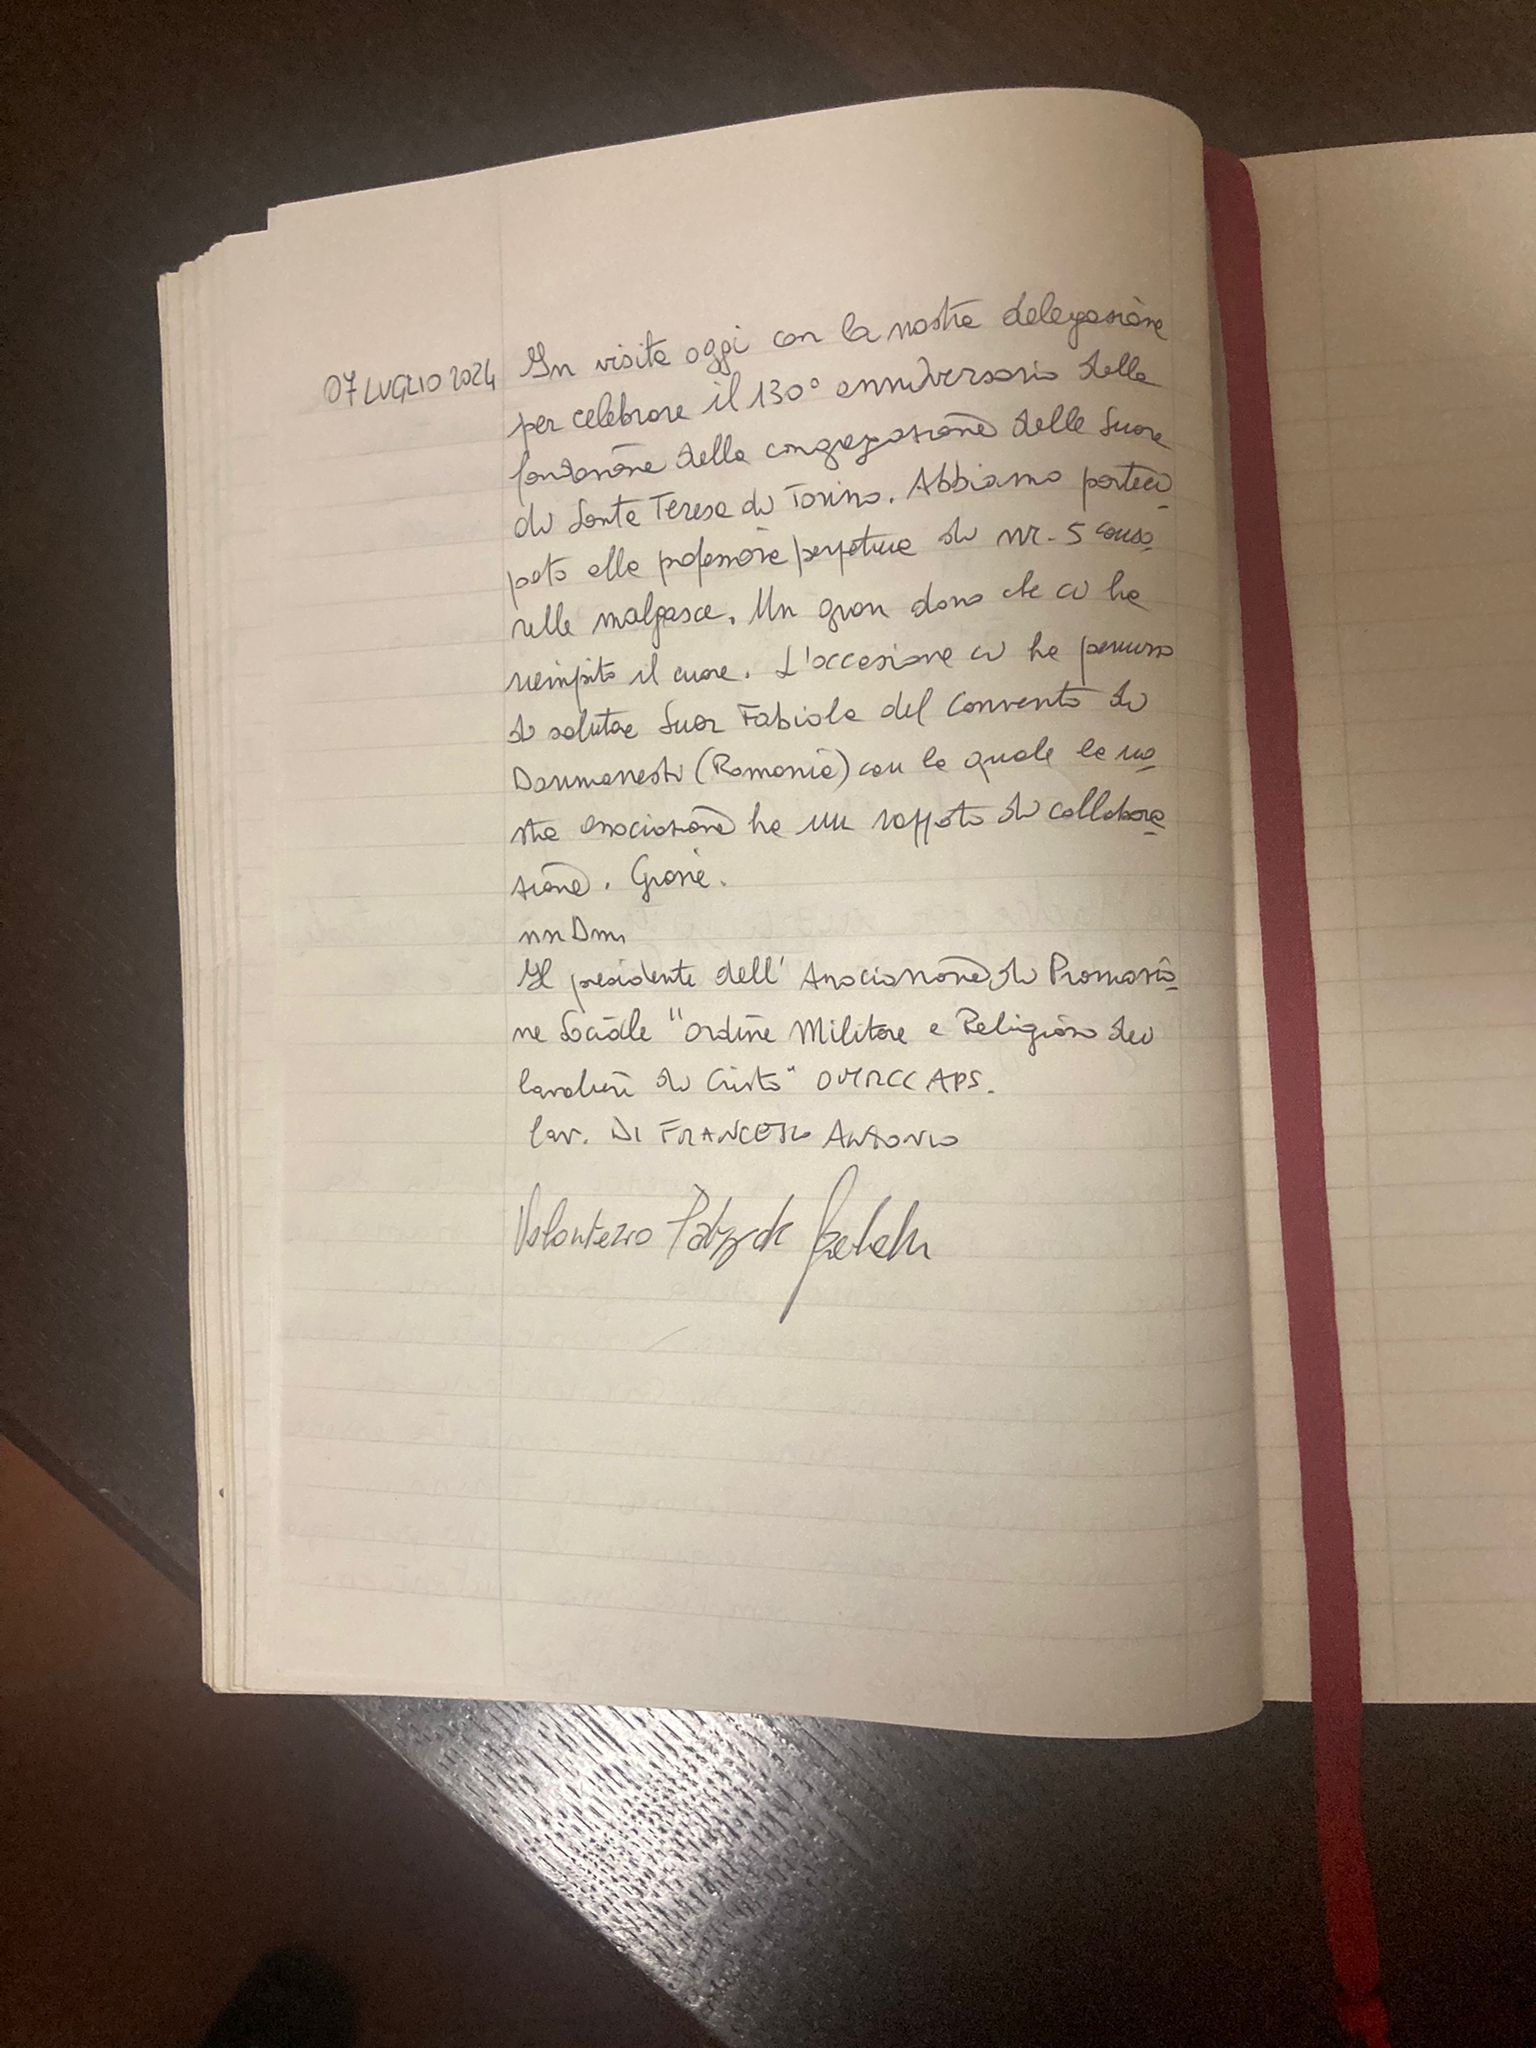 07 LUGLIO 2024 In visita oggi con la nostra delegazione
per celebrare il 130° anniversario della
fondazione della congregazione delle Suore
di Santa Teresa di Torino. Abbiamo parteci
pato alla professione perpetua di nr. 5 conso
relle malgasce. Un gran dono che ci ha
riempito il cuore. L'occasione ci ha permesso
di salutare Suor Fabiola del Convento di
Darmanesti (Romania) con la quale la no
stra associazione ha un rapporto di collabora
zione. Grazie.
nnDnn
Il presidente dell'Associazione di Promozio
ne Sociale "Ordine Militare e Religioso dei
Cavalieri di Cristo" OMRCC APS.
Cav. DI FRANCESCO ANTONIO
Volontario